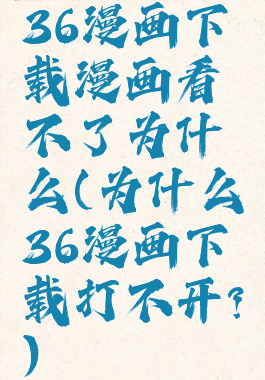 36漫画下
载漫画看
不了为什
么(为什么
36漫画下
载打不开?
)